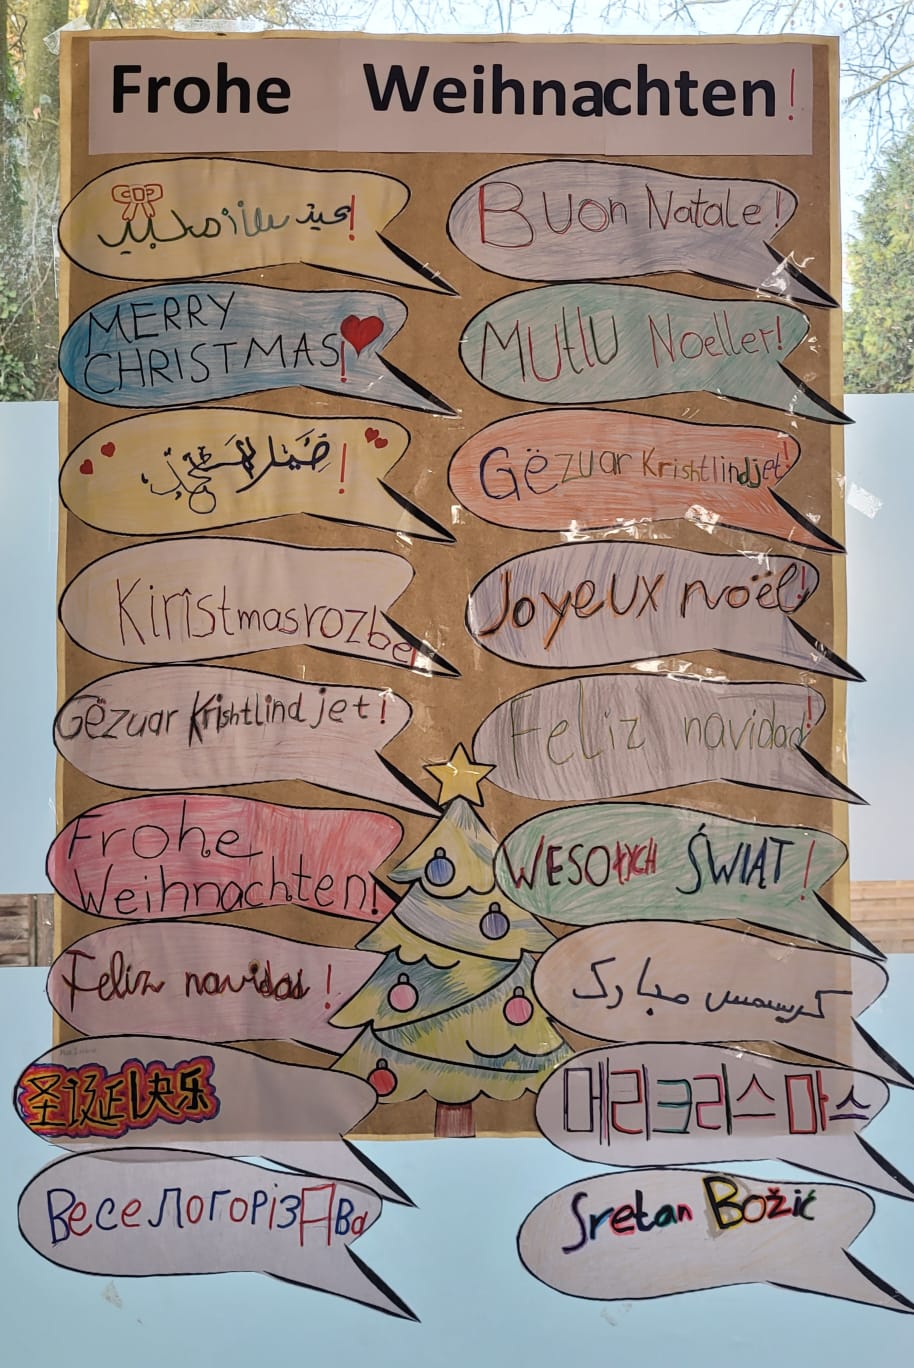 Frohe Weihnachten!
عيد
Buon Natale!
MERRY
CHRISTMAS!
Mutlu Noeller!
Gëzuar Krishtlindjet!
Kirîstmasrozbe
Joyeux noël!
Gëzuar Krishtlindjet!
Feliz navidad!
Frohe
Weihnachten!
WESOŁYCH ŚWIĄT!
Feliz navidad!
کریسمس مبارک
圣诞快乐
메리크리스마스
ВеселогорізДва
Sretan Božić